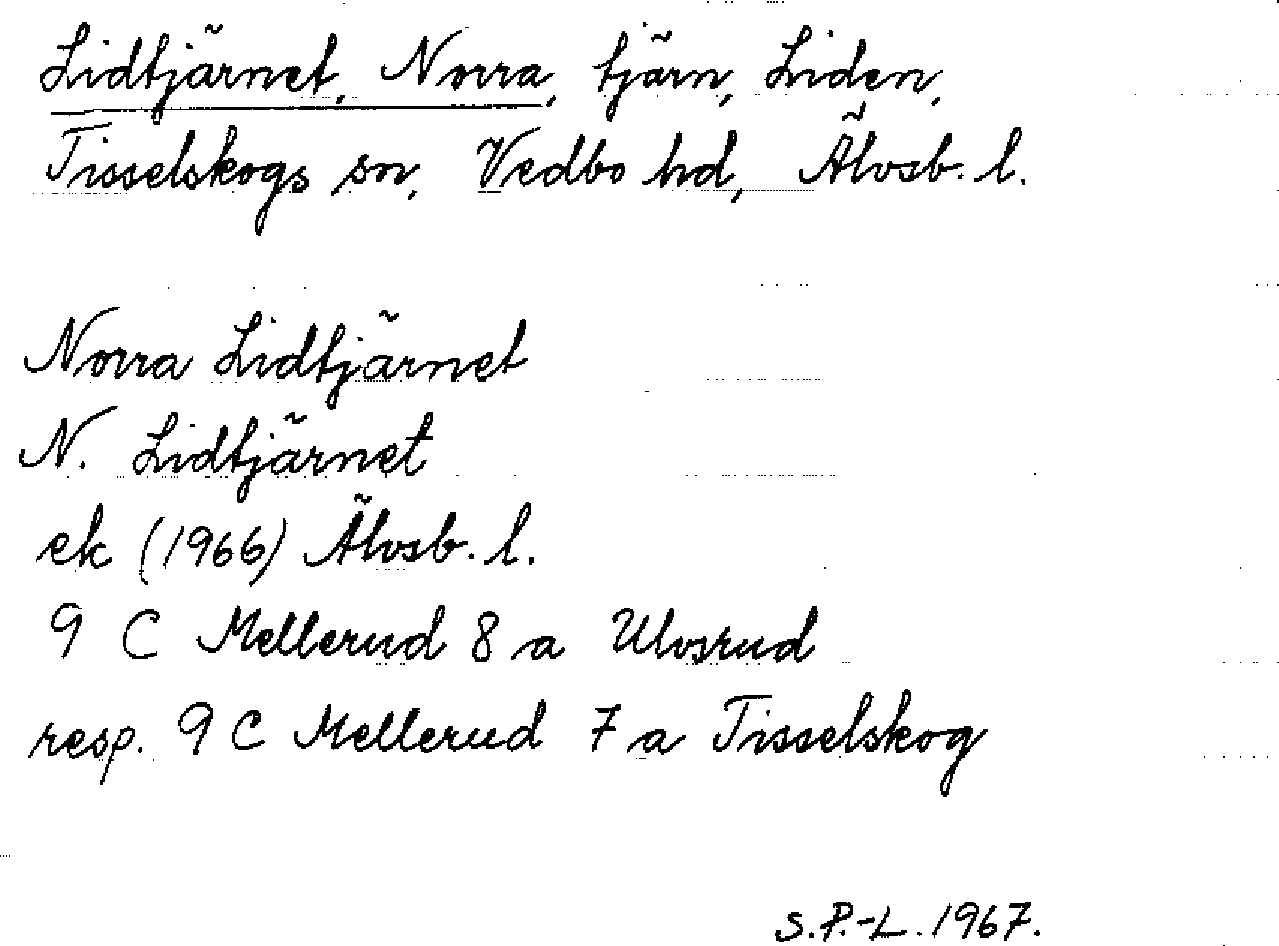 Lidtjärnet, Norra, tjärn, Liden,
Tisselskogs sn, Vedbo hd, Älvsb. l.
Norra Lidtjärnet
N. Lidtjärnet
ek (1966) Älvsb. l.
9 C Mellerud 8 a Ulvsrud
resp. 9 C Mellerud 7 a Tisselskog
S.P.-L. 1967.